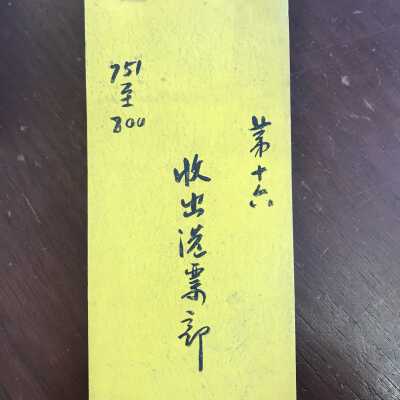 第十六
收出港票部
751
至
800